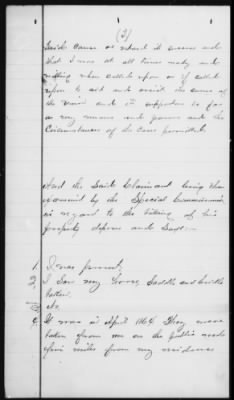 (2)
Said cause as what it seems and
that I was at all times ready and
willing when called upon or if called
upon to aid and assist the cause of
the Union and its supporters so far
as my means and power and the
Circumstances of the case permitted
And the said Claimant being then
examined by the Special Commissioner
in regard to the taking of his
property depose and says:
1. I was present.
2. I saw my Horse, Saddle and bridle
taken.
3. No.
4. It was in April 1864 They were
taken from me on the public road
five miles from my residence